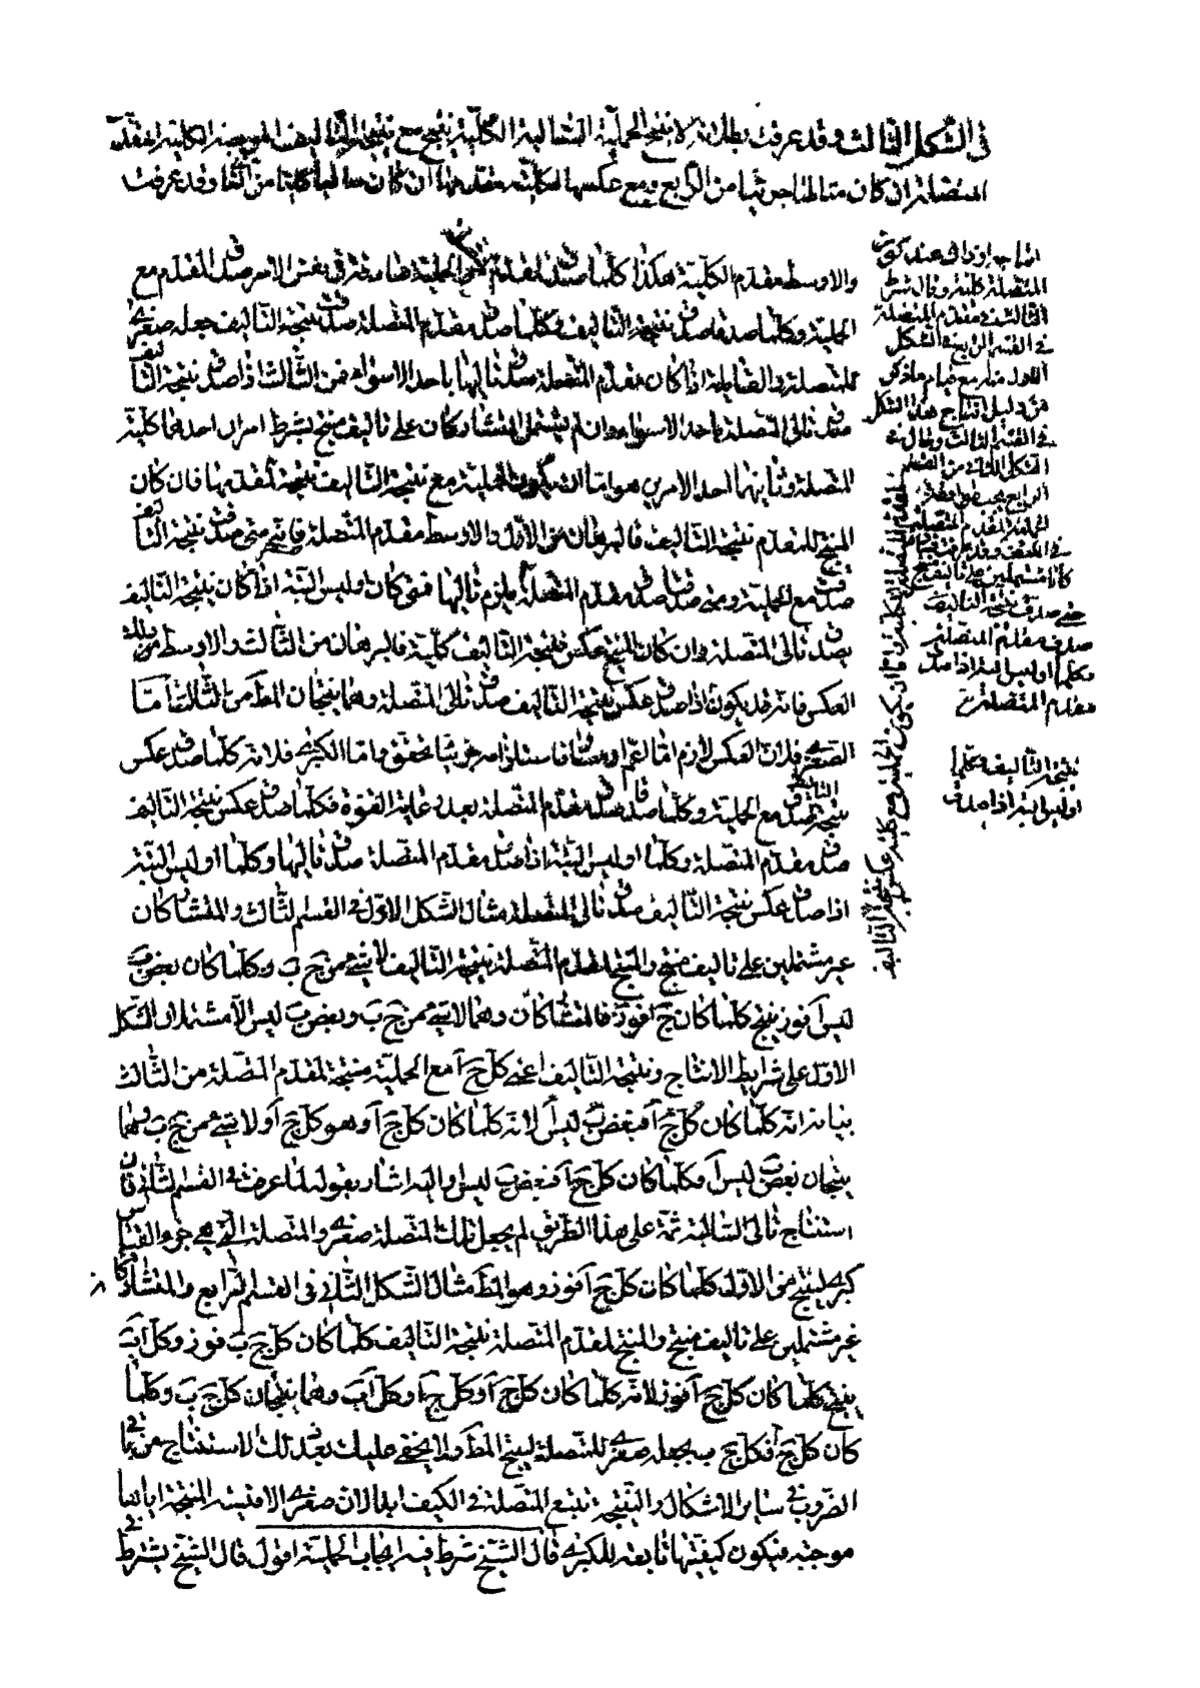 في الشكل الثالث وقد عرفت بطلانه لا ينتج الحملية السالبة الكلية ينتج مع نتيجة التأليف الموجبة الكلية لمقدم
المتصلة ان كان من الرابع ومع عكسها الكلية مقدمها ان كان وقد عرفت
والاوسط مقدم الكلية هكذا كلما صدق المقدم الحملية صادقة في نفس الامر صدق المقدم مع
الحملية وكلما صدقا صدق نتيجة التأليف وكلما صدق مقدم المتصلة صدق نتيجة التأليف جعله صغرى
للمتصلة والضابطة اذا كان مقدم المتصلة تاليها باحد الاسوار فمن الثالث اذا صدق نتيجة التأليف
صدق تالى المتصلة باحد الاسوار وان لم يشتمل المتشاركان على تأليف منتج يشترط امران احدهما كلية
المتصلة وثانيهما احد الامرين هو اما ان يكون الحملية مع نتيجة التأليف منتجة لمقدمها فان كان
المنتج للمقدم نتيجة التأليف فالبرهان من الاول والاوسط مقدم المتصلة فانه متى صدقت نتيجة التأليف
صدق مع الحملية ومتى صدقتا صدق مقدم المتصلة ويلزم تاليها فمتى كان او ليس البتة اذا كان نتيجة التأليف
يصدق تالى المتصلة وان كان المنتج عكس نتيجة التأليف كلية فالبرهان من الثالث والاوسط ذلك
العكس فانه قد يكون اذا صدق عكس نتيجة التأليف صدق تالى المتصلة وهما ينتجان المط من الثالث اما
الصغرى فلان العكس لازم اما اعم او مساو فاستلزامه جزئيا محقق واما الكبرى فلانه كلما صدق عكس
نتيجة التأليف صدق مع الحملية وكلما صدقا صدق مقدم المتصلة بعد رعاية القوة فكلما صدق عكس نتيجة التأليف
صدق مقدم المتصلة وكلما او ليس البتة اذا صدق مقدم المتصلة صدق تاليها وكلما او ليس البتة
اذا صدق عكس نتيجة التأليف صدق تالى المتصلة مثال الشكل الاول في القسم الثالث والمتشاركان
غير مشتملين على تأليف منتج والمنتج لمقدم المتصلة نتيجة التأليف لا شىء من ج ب وكلما كان بعض ب
ليس آ فوز ينتج كلما كان ج آ فوز فالمتشاركان وهما لا شىء من ج ب وبعض ب ليس الآ مشتملا والشكل
الاول على شرايط الانتاج ونتيجة التأليف اعنى كل ج آ مع الحملية منتجة لمقدم المتصلة من الثالث
بيانه انه كلما كان كل ج آ فبعض ب ليس آ لانه كلما كان كل ج آ وهو كل ج آ ولا شىء من ج ب وهما
ينتجان بعض ب ليس آ فكلما كان كل ج آ فبعض ب ليس واليه اشار بقوله لما عرفت في القسم الثانى فان
استنتاج تالى السالبة ثمة على هذا الطريق لم يجعل تلك المتصلة صغرى والمتصلة التى هى جزء القياس
كبرى لينتج من الاول كلما كان كل ج آ فوز وهو المط مثال الشكل الثانى في القسم الرابع والمتشاركان
غير مشتملين على تأليف منتج والمنتج لمقدم المتصلة نتيجة التأليف كلما كان كل ج ب فوز وكل آ ب
ينتج كلما كان كل ج آ فوز لانه كلما كان كل ج آ وكل ج آ وكل آ ب وهما ينتجان كل ج ب وكلما
كان كل ج آ فكل ج ب يجعله صغرى للمتصلة لينتج المط ولا يخفى عليك بعد ذلك الاستنتاج من باقى
الضروب في ساير الاشكال والنتيجة تتبع المتصلة في الكيف ابدا لان صغرى الاقيسة المنتجة اياها
موجبة فيكون كيفيتها تابعة للكبرى قال الشيخ شرط فيه ايجاب الحملية اقول قال الشيخ يشترط في
المتصلة كلية وقال شرط
الثالث في مقدم المتصلة
في القسم الرابع في الشكل
الاول مع قيام ما ذكر
من دليل انتاج هذا الشكل
في القسم الثالث وقال في
الشكل الثانى من القسم
الرابع يجب
الحملية لمقدم المتصلة
كانا مشتملين على تأليف منتج
حتى صدق نتيجة التأليف
صدق مقدم المتصلة
وكلما او ليس البتة اذا صدق
مقدم المتصلة
نتيجة التأليف وكلما
او ليس البتة اذا صدق
لمقدم المتصلة الكلية واما ان يكون الحملية مع كلية عكس نتيجة التأليف